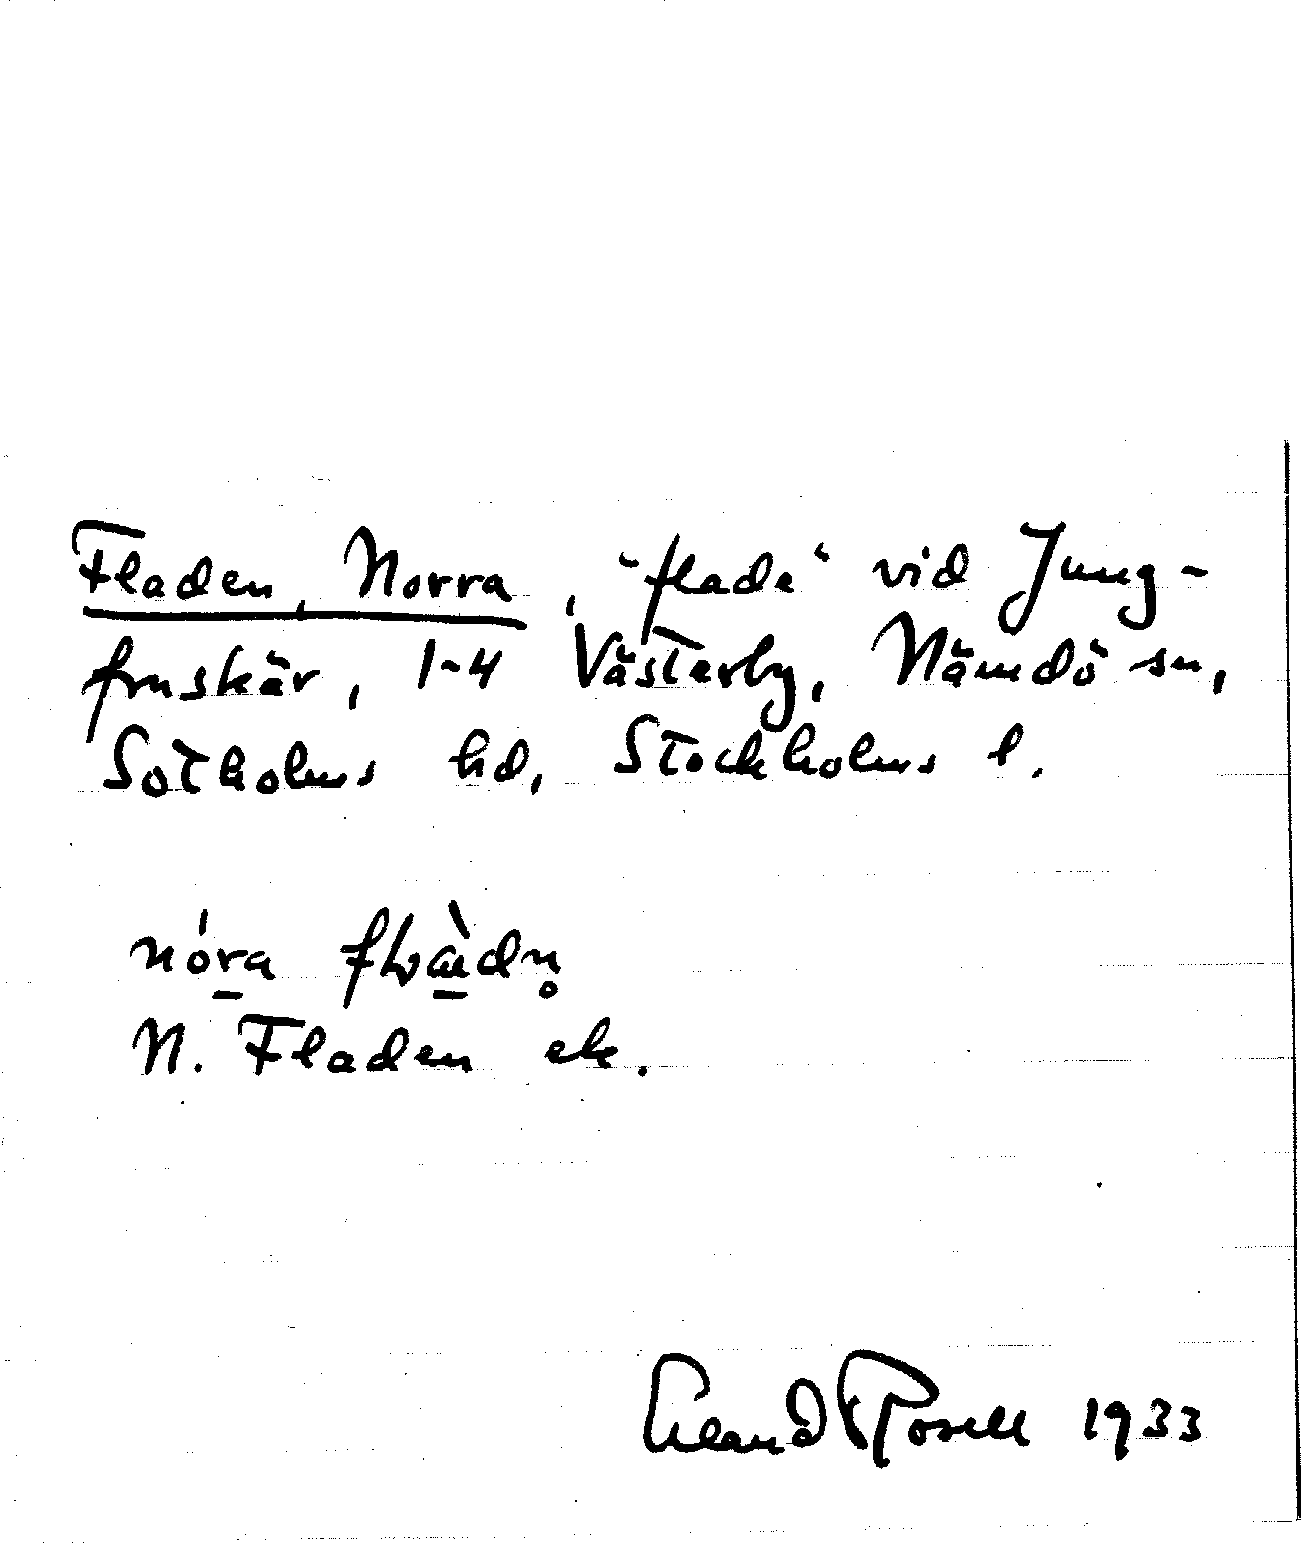 Fladen, Norra, "flade" vid Jung-
fruskär, 1-4 Västerby, Nämdö sn,
Sotholms hd, Stockholms l.
nóra
N. Fladen ek.
Erland Rosell 1933